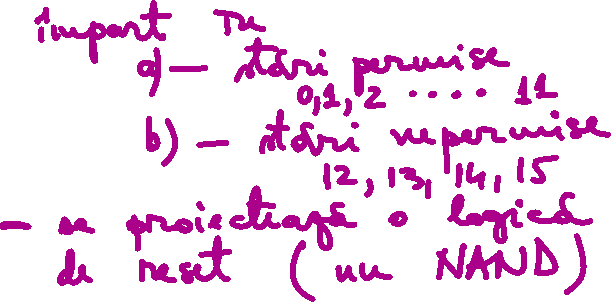 împart în
a) — stări permise
0,1,2 .... 11
b) — stări nepermise
12, 13, 14, 15
— se proiectează o logică
de reset (un NAND)